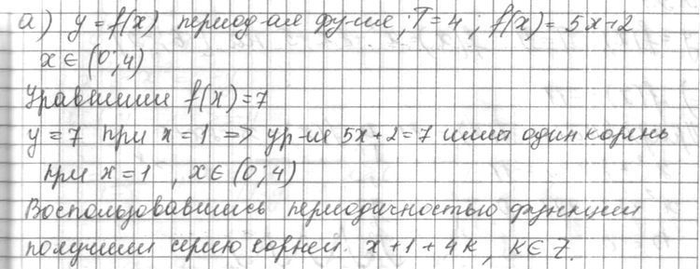 а) y = f(x) период-ая фу-ция; T = 4; f(x) = 5x+2
x ∈ (0;4)
Уравнение f(x) = 7
y = 7 при x = 1 => ур-ие 5x + 2 = 7 имеет один корень
при x = 1, x ∈ (0;4)
Воспользовавшись периодичностью функции
получим серию корней. x + 1 + 4k, k ∈ Z.